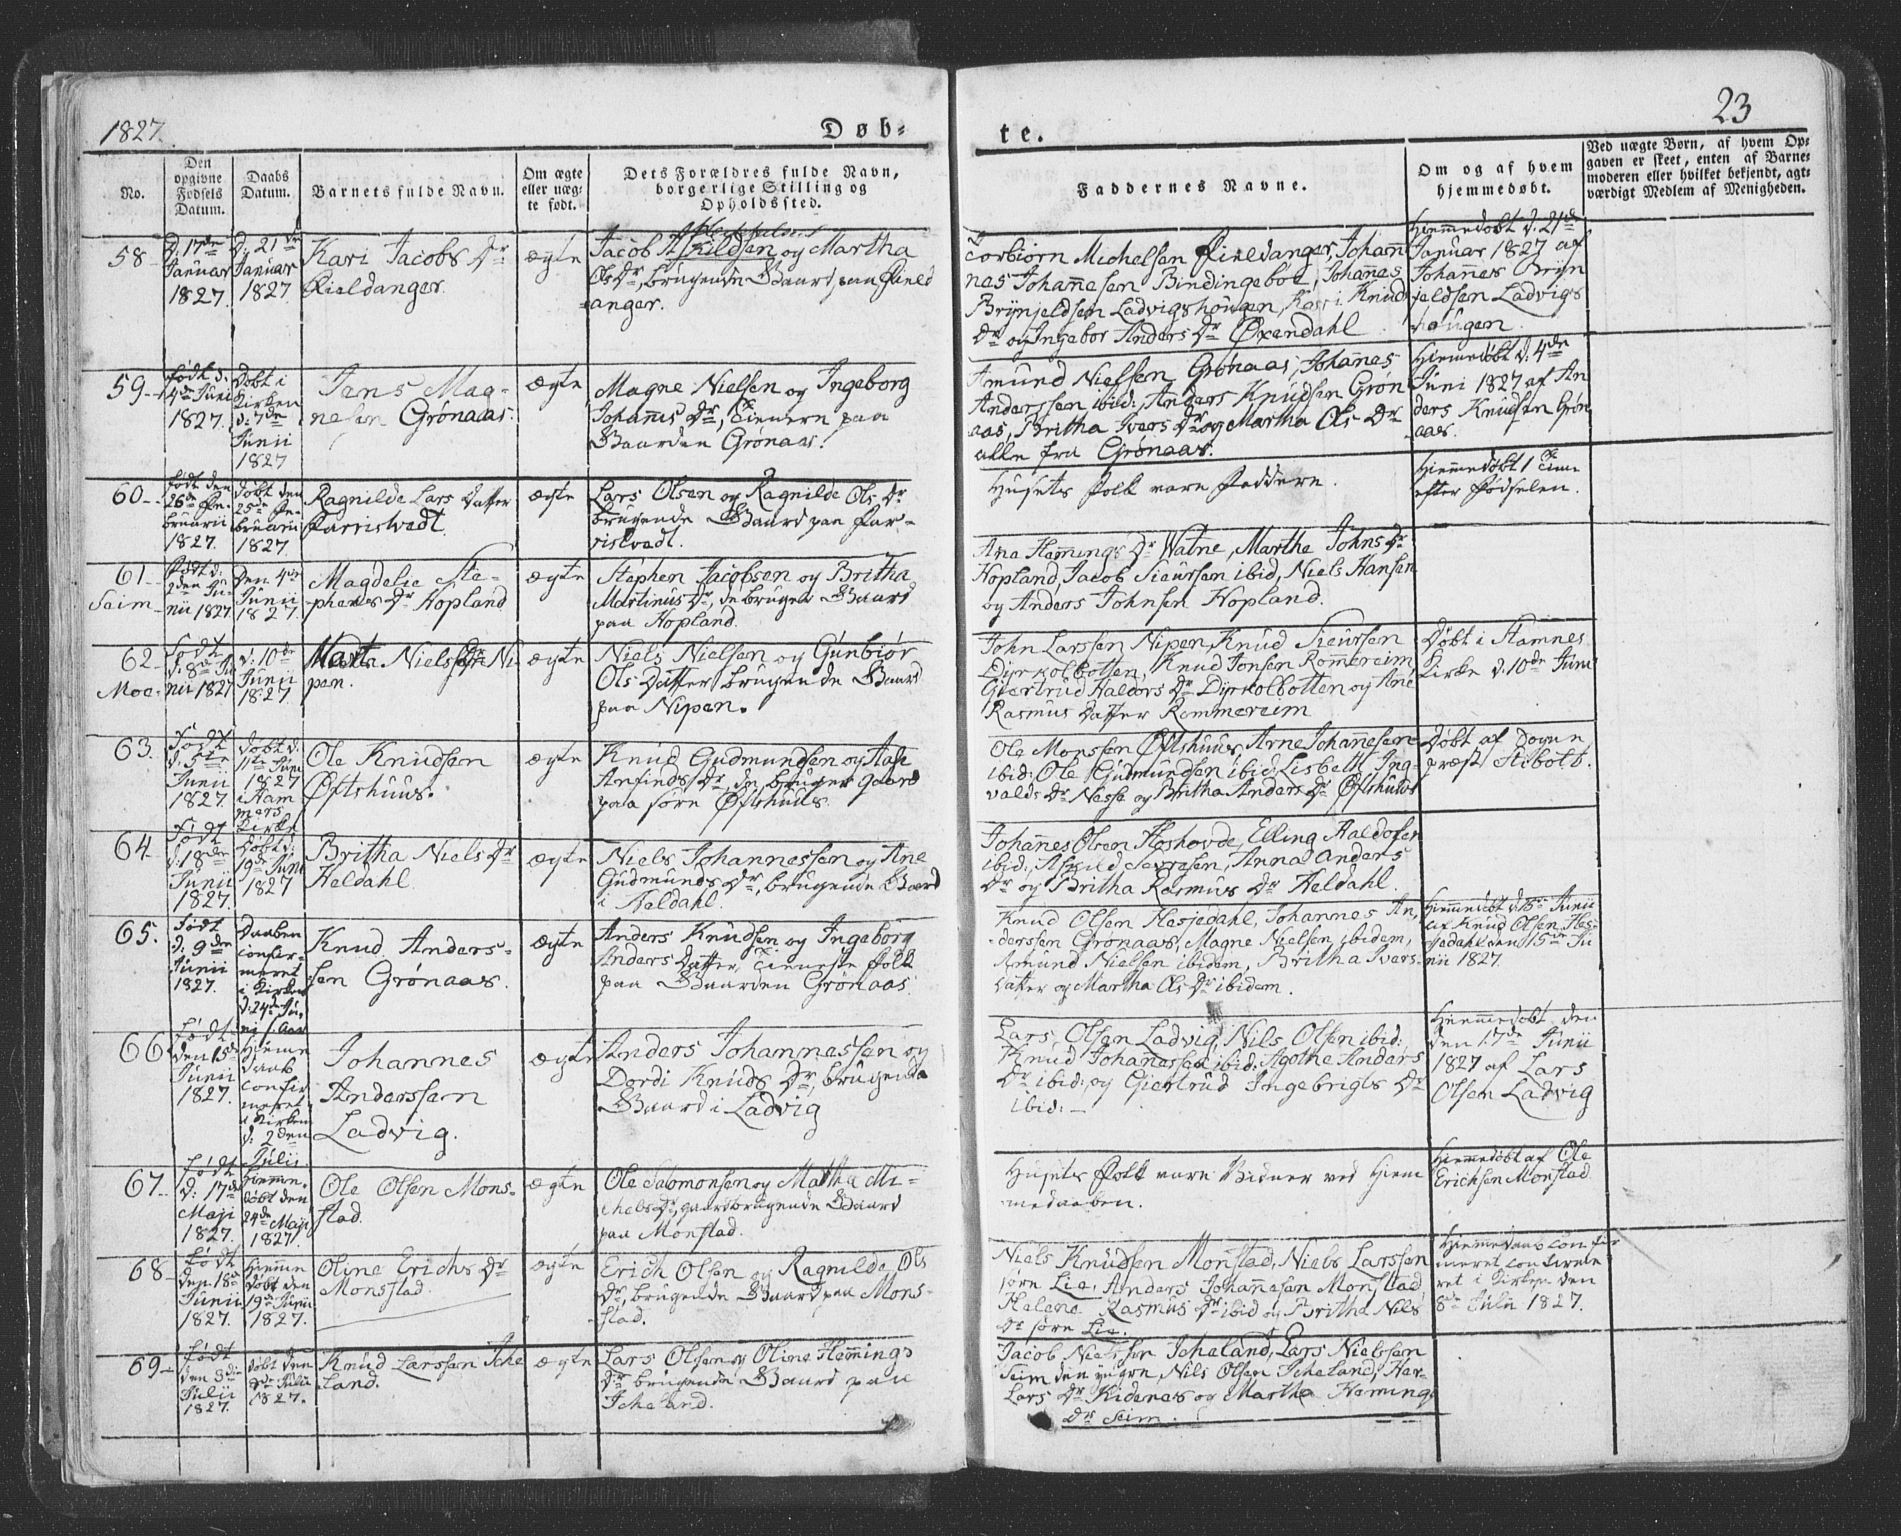 1827.
Døb-
te.
23
No.
Den
opgivne
Fødsels
Datum.
Daabs
Datum.
Barnets fulde Navn.
Om ægte
eller uæg-
te født.
Dets Forældres fulde Navn,
borgerlige Stilling og
Opholdssted.
Faddernes Navne.
Om og af hvem
hjemmedøbt.
Ved uægte Børn, af hvem Op-
gaven er skeet, enten af Barne-
moderen eller hvilket bekjendt, agt-
værdigt Medlem af Menigheden.
58
D: 17de
Januar
1827.
D: 21de
Januar
1827
Kari Jacobs Dr
Fieldanger.
ægte
Jacob Askildsen og Martha
Ols Dr, brugende Gaard paa Field
anger.
Torbiørn Michelsen Fieldanger, Johan̄
nes Johan̄esen Bindingeboe, Johan̄es
Brynjeldsen Ladvigshougen, Kari Knuds
Dr og Ingebor Anders Dr Øxendahl
Hiemmedøbt d. 21de
Januar 1827 af
Johan̄es Bryn
jeldsen Ladvigs
hougen.
59
Født d.
4de Juni
1827.
Døbt i
Kirken
d: 7de
Junii
1827
Jens Mag-
nesen Grønaas.
ægte
Magne Nielsen og Ingeborg
Johan̄es Dr, Tienere paa
Gaarden Grønaas.
Amund Nielsen Grønaas, Johan̄es
Anderssen ibid:, Anders Knudsen Grøn
aas, Britha Ivers Dr og Martha Ols Dr
alle fra Grønaas.
Hiemmedøbt d: 4de
Juni 1827 af An
ders Knudsen Grøn
aas.
60
Født den
26de Fe-
bruarii
1827.
Døbt den
25de Fe-
bruarii
1827.
Ragnilde Lars Datter
Farristvedt.
ægte
Lars Olsen og Ragnilde Ols Dr
brugende Gaard paa Far-
ristvedt.
Husets folk vare Faddere.
Hiemmedøbt 1 Time
efter Fødselen.
61
Seim
Født d:
2den Ju-
nii 1827.
Den 4de
Junii
1827.
Magdele Ste-
phens Dr Hopland
ægte
Stephen Jacobsen og Britha
Martinus Dr, de bruger Gaard
paa Hopland.
Ana Hem̄ings Dr Watne, Marthe Johns Dr
Hopland, Jacob Sieursen ibid, Niels Hansen
og Anders Johnsen Hopland.
62
Moe
Født
d: 8de Ju
nii 1827
d: 10de
Junii
1827
Niels Dr Ni
pen.
ægte
Niels Nielsen og Gunbiør
Ols Datter brugende Gaard
paa Nipen.
John Larssen Nipen, Knud Sieursen
Dyrkolbotten, Knud Jonsen Rom̄ereim
Giertrud Haldors Dr Dyrkolbotten og Ane
Rasmus Datter Rommereim
Døbt i Stamnes
Kirke d. 10de Juni
63.
Født
d. 5te
Junii
1827.
Døbt d.
11te Juni
1827
i Ham
mers
Kirke
Ole Knudsen
Øftshuus.
ægte
Knud Gudmundsen og Aase
Arfinds Dr, de bruger gaard
paa søre Øftshuus
Ole Monsen Øftshuus, Arne Johan̄esen
ibid: Ole Gudmundsen ibid, Lisbeth Ing-
valds Dr Nesse og Britha Anders Dr Øftshuus
Døbt af Sogne
præst Stiboldt.
64
Født
d: 18de
Junii
1827.
Døbt d:
19de Juni
1827
Britha Niels Dr
Heldahl.
ægte
Niels Johannessen og Ane
Gudmunds Dr, brugende Gaard
i Heldahl.
Johan̄es Olsen Hoshovde, Elling Haldorsen
ibid: Askild Severesen, Anna Anders
Dr og Britha Rasmus Dr Heldahl.
65.
Født
d: 9de
Junii
1827.
Daaben
confir-
meret
i Kirken
d: 24de Ju-
ni
Knud Anders-
sen Grønaas.
ægte
Anders Knudsen og Ingeborg
Anders Datter, Tieneste folk
paa Gaarden Grønaas.
Knud Olsen Hesjedahl, Johannes An-
derssen Grønaas, Magne Nielsen ibidem,
Amund Nielsen ibidem, Britha Ivers-
datter og Martha Ols Dr ibidem.
Hiemmedøbt d. 15de Junii
af Knud Olsen Hes-
jedahl den 15de Ju
nii 1827.
66
Født
den 15de
Junii
1827.
Hieme
daab
confir
meret
i Kirken
d: 2den
Julii.
Johannes
Anderssen
Ladvig.
ægte
Anders Johannessen og
Dordi Knuds Dr, brugende
Gaard i Ladvig
Lars, Olsen Ladvig, Nils Olsen ibid:
Knud Johanessen ibid: Agothe Anders
Dr ibid: og Giertrud Ingebrigts Dr
ibid:
Hiemmedøbt den
den 17de Junii
1827 af Lars
Olsen Ladvig
67.
Født
d: 17de
Maji
1827.
Hiemme-
døbt den
24de Maji
1827.
Ole Olsen Mons-
stad.
ægte
Ole Salomonsen og Martha Mi-
chels Dr, gaardbrugende Gaard
paa Monstad.
Husets Folk vare Vidner ved Hiem
medaaben.
Hiemmedøbt af Ole
Erichsen Monstad.
68
Født
den 18de
Junii
1827.
Hiemme
døbt den
19de Junii
1827.
Oline Erichs Dr
Monsstad.
ægte
Erich Olsen og Ragnilde Ols
Dr, brugende Gaard paa Mons-
stad.
Niels Knudsen Monstad, Niels Larssen
søre Lie, Anders Johan̄esen Monstad
Helene Rasmus Dr ibid og Britha Nils
Dr søre Lie.
Hiemmedaab confir
meret
ret i Kirken den
8de Julii 1827.
69
Født
den 3die
Julii
1827.
Døbt den
8de Julii
1827.
Knud Larssen Icke
land.
ægte
Lars Olsen og Oline Hem̄ings
Dr brugende Gaard paa
Icheland.
Jacob Nielssen Icheland, Lars Nielssen
Seim den yngre, Nils Olsen Icheland, Her-
Lars Dr Kidenes og Martha Hemings
Drs Seim.